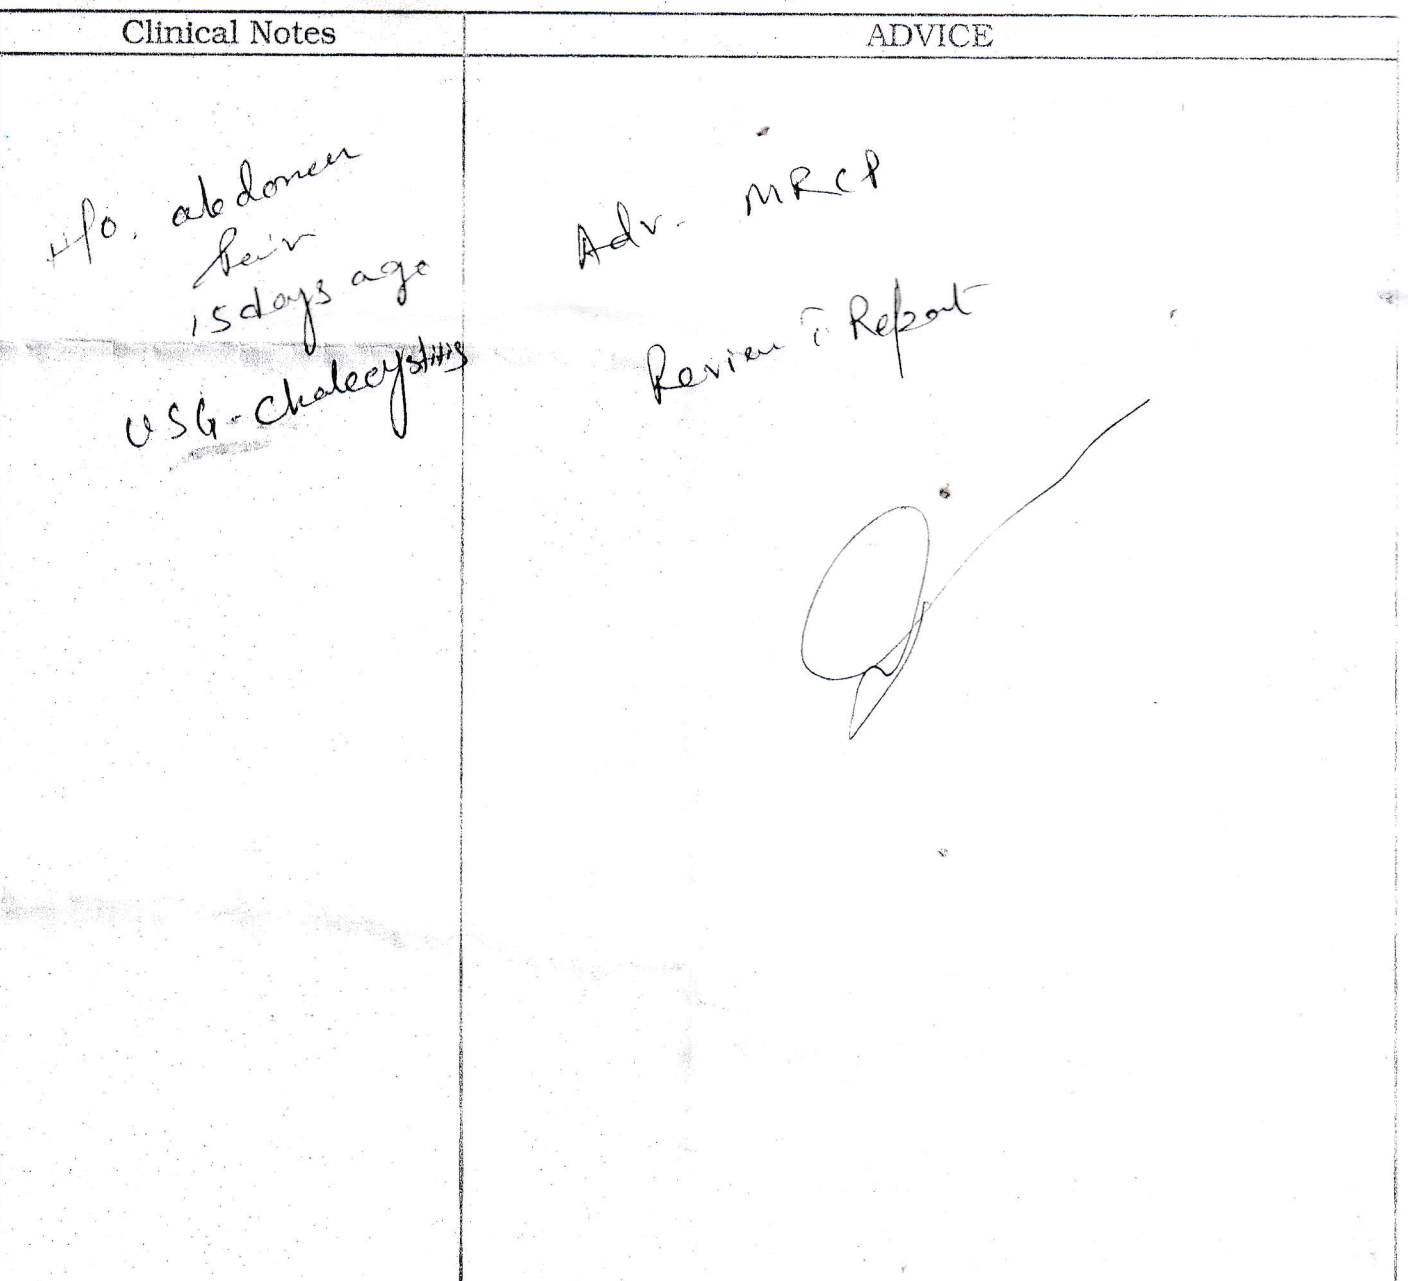 Clinical Notes
ADVICE
H/o. abdomen
Pain
15 days ago
USG - Cholecystitis
Adv. MRCP
Review c̄ Report